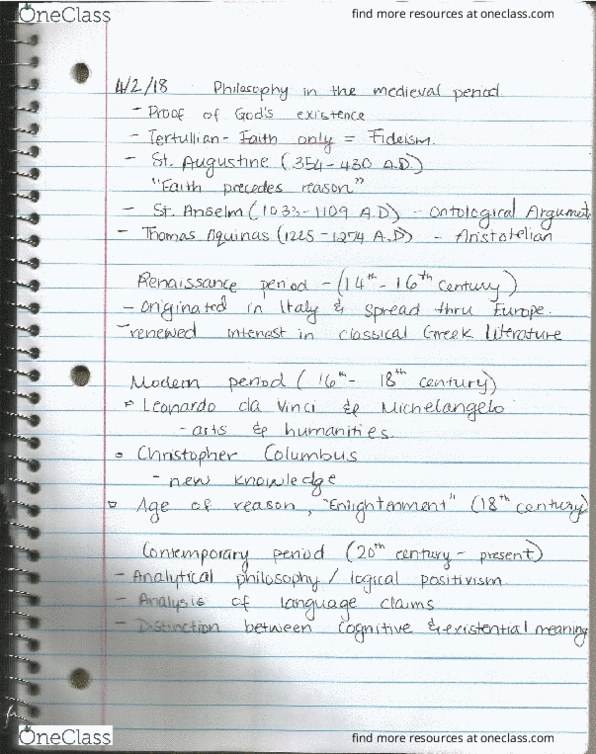 OneClass
find more resources at oneclass.com
4/2/18 Philosophy in the medieval period
- Proof of God's existence
- Tertullian - Faith only = Fideism.
- St. Augustine (354-430 A.D.)
"Faith precedes reason"
- St. Anselm (1033-1109 A.D) - Ontological Argument
- Thomas Aquinas (1225-1274 A.D) - Aristotelian
Renaissance period - (14th - 16th century)
- originated in Italy & spread thru Europe.
- renewed interest in classical Greek literature
Modern period (16th - 18th century)
- Leonardo da Vinci & Michelangelo
- arts & humanities.
• Christopher Columbus
- new knowledge
• Age of reason, "Enlightenment" (18th century)
Contemporary period (20th century - present)
- Analytical philosophy / logical positivism.
- Analysis of language claims
- Distinction between cognitive & existential meaning
OneClass
find more resources at oneclass.com